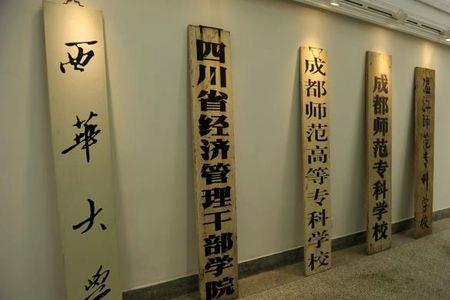 西華大學
四川省经济管理干部学院
成都师范高等专科学校
成都师范专科学校
温江师范专科学校